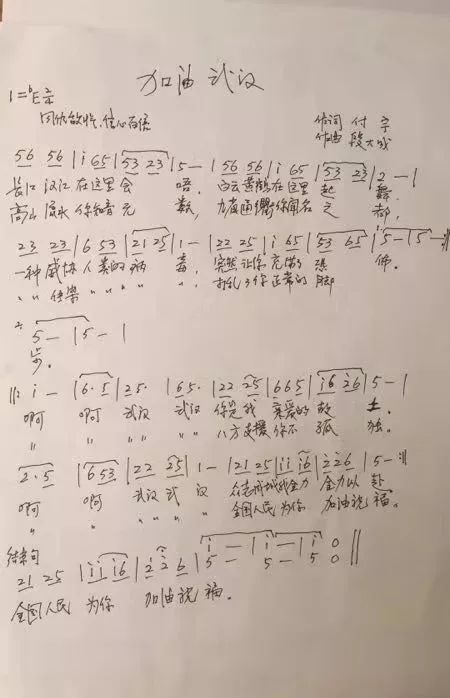 加油 武汉
1=♭E 2/4
同仇敌忾、信心百倍
作词 付 宇
作曲 段大成
56 56 | i 65 | 53 23 | 5 — | 56 56 | i 65 | 53 23 | 2 — |
长江 汉江 在这里 会 唔, 白云 黄鹤 在这里 起 舞,
高山 流水 你知音 无 数, 九省通衢 你闻名 之 都,
23 23 | 6 53 | 21 25 | 1 — | 22 25 | i 65 | 53 65 | i 5 — | 5 — :||
一种 威胁 人类的 病 毒, 突然 让你 充满了 恐 怖。
〃〃 传染 〃 〃 〃 〃 打乱了你 正常的 脚
5 — | 5 — |
步。
||: i — | 6· 5 | 25· | 65· | 22 25 | 665 | i6 26 | 5 — |
啊 啊 武汉 武汉 你是我 亲爱的 故 土。
〃 〃 〃 〃 〃 〃 八方支援 你不 孤 独。
2· 5 | 6 53 | 22 25 | 1 — | 21 25 | ii i6 | 226 | 5 — :||
啊 啊 武汉 武 汉 众志成城 全力 全力以 赴
〃 〃 〃 〃 〃 〃 全国人民 为你 加油祝 福。
结束句
21 25 | ii i6 | 2 26 | i — | i — | i 0 ||
5 — 5 — 5 0
全国人民 为你 加油祝 福。